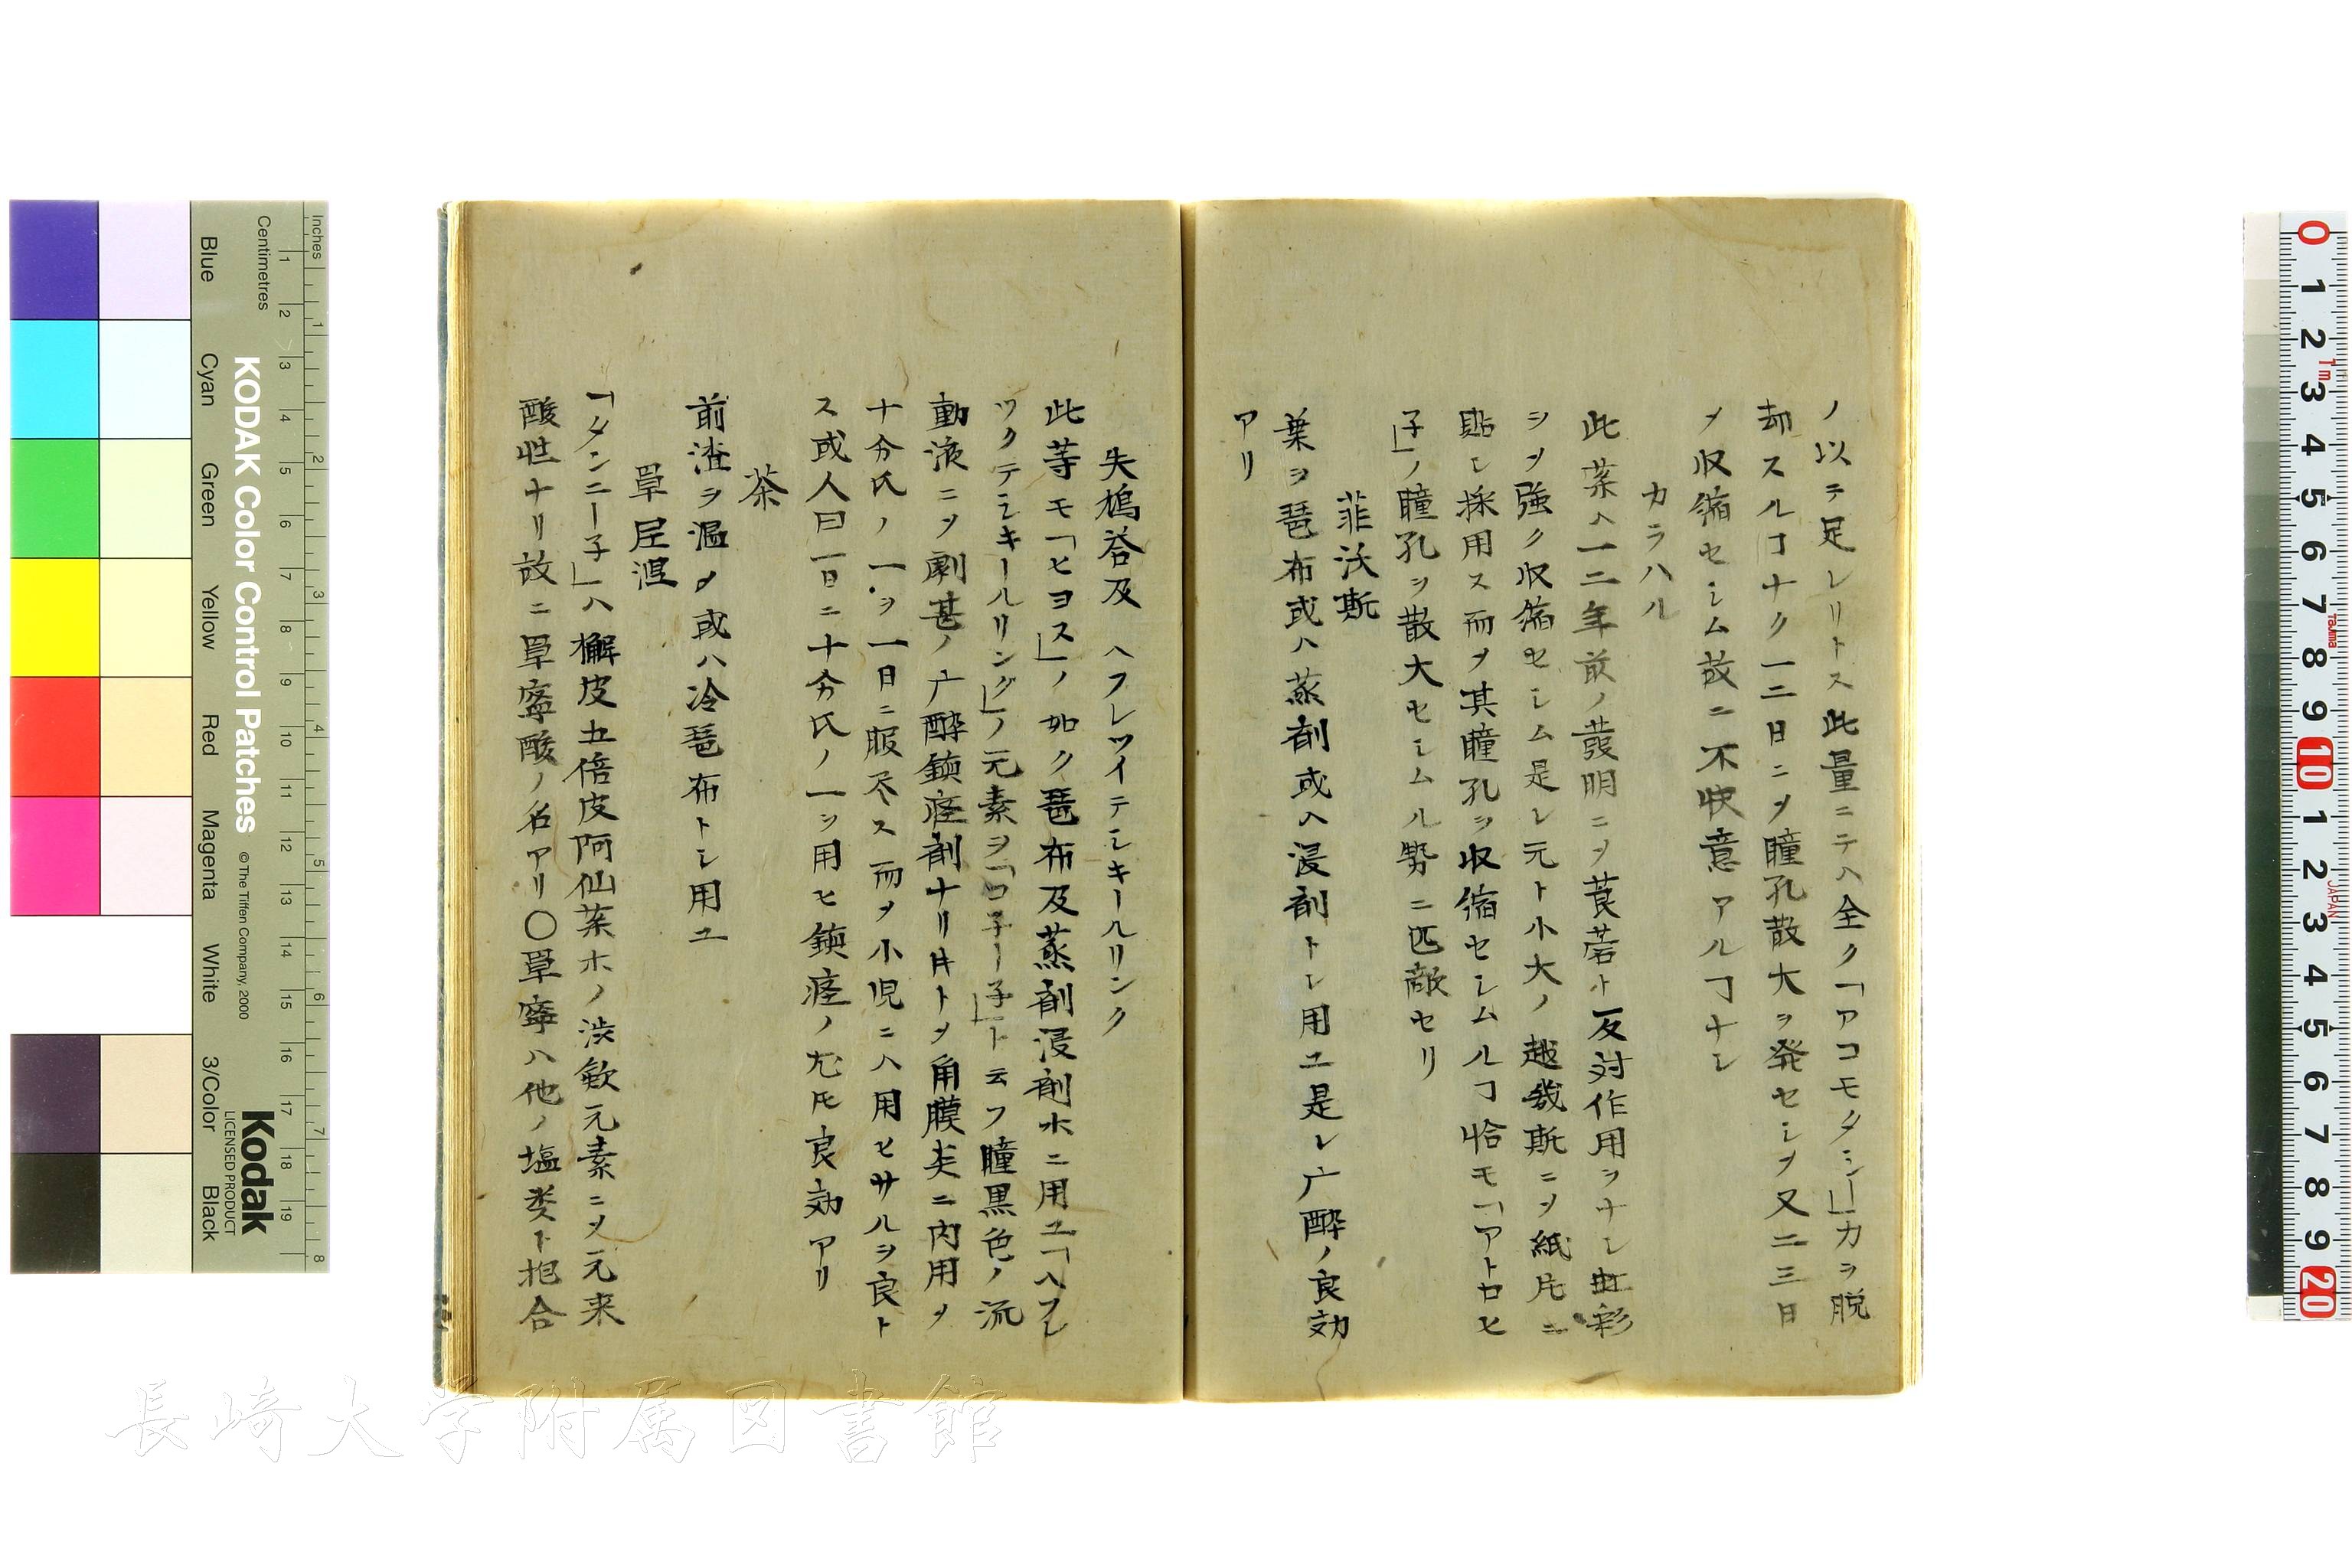 ノ以テ足レリトス此量ニテハ全ク「アコモタシー」カラ脱
却スルヿナク一二日ニシテ瞳孔散大ヲ発セシメ又二三日
メ収縮セシム故ニ不快意アルヿナシ
カラハル
此薬ハ一二年前ノ發明ニメ莨菪ト反対作用ヲナシ虹彩
ヲメ強ク収縮セシム是レ元ト小大ノ越幾斯ニメ紙片ニ
貼シ採用ス而メ其瞳孔ヲ収縮セシムルヿ恰モ「アトロヒ
子」ノ瞳孔ヲ散大セシムル勢ニ匹敵セリ
菲沃斯
葉ヲ琶布或ハ蒸剤或ハ浸剤トシ用ユ是レ广酔ノ良効
アリ
失鳩荅及 ヘフレツイテシキールリンク
此等モ「ヒヨス」ノ如ク琶布及蒸剤浸剤ホニ用ユ「ヘフレ
ツクテシキールリング」ノ元素ヲ「コ子ー子」ト云フ瞳黒色ノ流
動液ニメ劇甚ノ广酔鎮痙剤ナリ𪜈トメ角膜炎ニ内用メ
十分氏ノ一ヲ一日ニ服尽ス而メ小児ニハ用ヒサルヲ良ト
ス或人曰一日ニ十分氏ノ一ヲ用ヒ鎮痙ノ尤モ良効アリ
茶
前渣ヲ温メ或ハ冷琶布トシ用ユ
單𡰱涅
「タンニー子」ハ檞皮五倍皮阿仙薬ホノ渋斂元素ニメ元来
酸性ナリ故ニ單寧酸ノ名アリ〇單寧ハ他ノ塩类ト抱合
Inches
Centimetres
Blue
Cyan
Green
Yellow
Red
Magenta
White
3/Color
Black
KODAK Color Control Patches
©The Tiffen Company, 2000
Kodak
LICENSED PRODUCT
長崎大学附属図書館